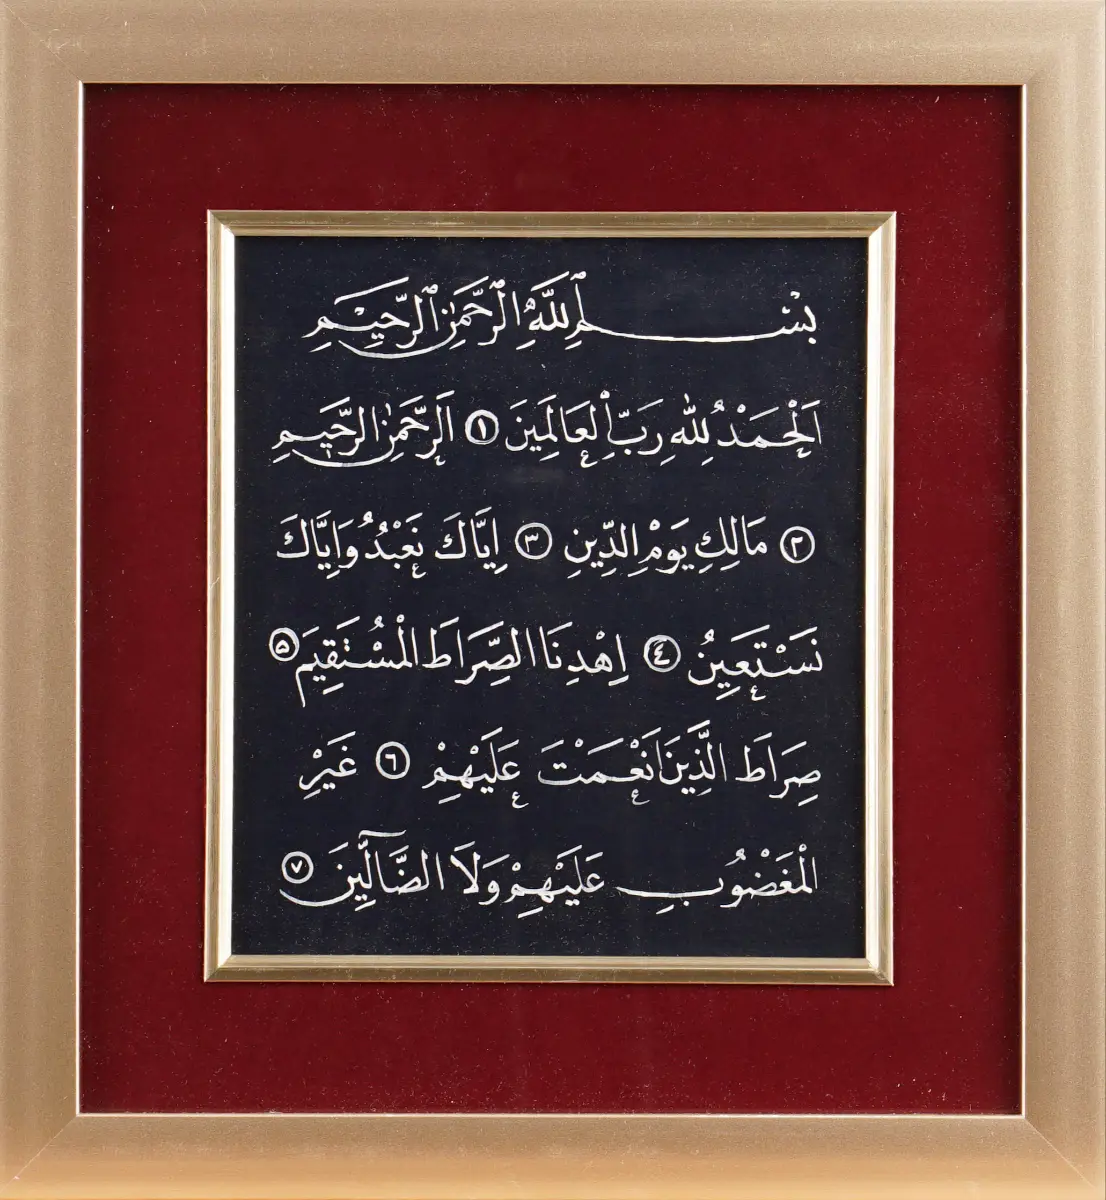 بِسْمِ ٱللَّهِ ٱلرَّحْمَٰنِ ٱلرَّحِيمِ
اَلْحَمْدُ لِلَّهِ رَبِّ ٱلْعَالَمِينَ ١ اَلرَّحْمَٰنِ الرَّحِيمِ
٢ مَالِكِ يَوْمِ الدِّينِ ٣ اِيَّاكَ نَعْبُدُ وَاِيَّاكَ
نَسْتَعِينُ ٤ اِهْدِنَا الصِّرَاطَ الْمُسْتَقِيمَ ٥
صِرَاطَ الَّذِينَ اَنْعَمْتَ عَلَيْهِمْ ٦ غَيْرِ
الْمَغْضُوبِ عَلَيْهِمْ وَلَا الضَّآلِّينَ ٧